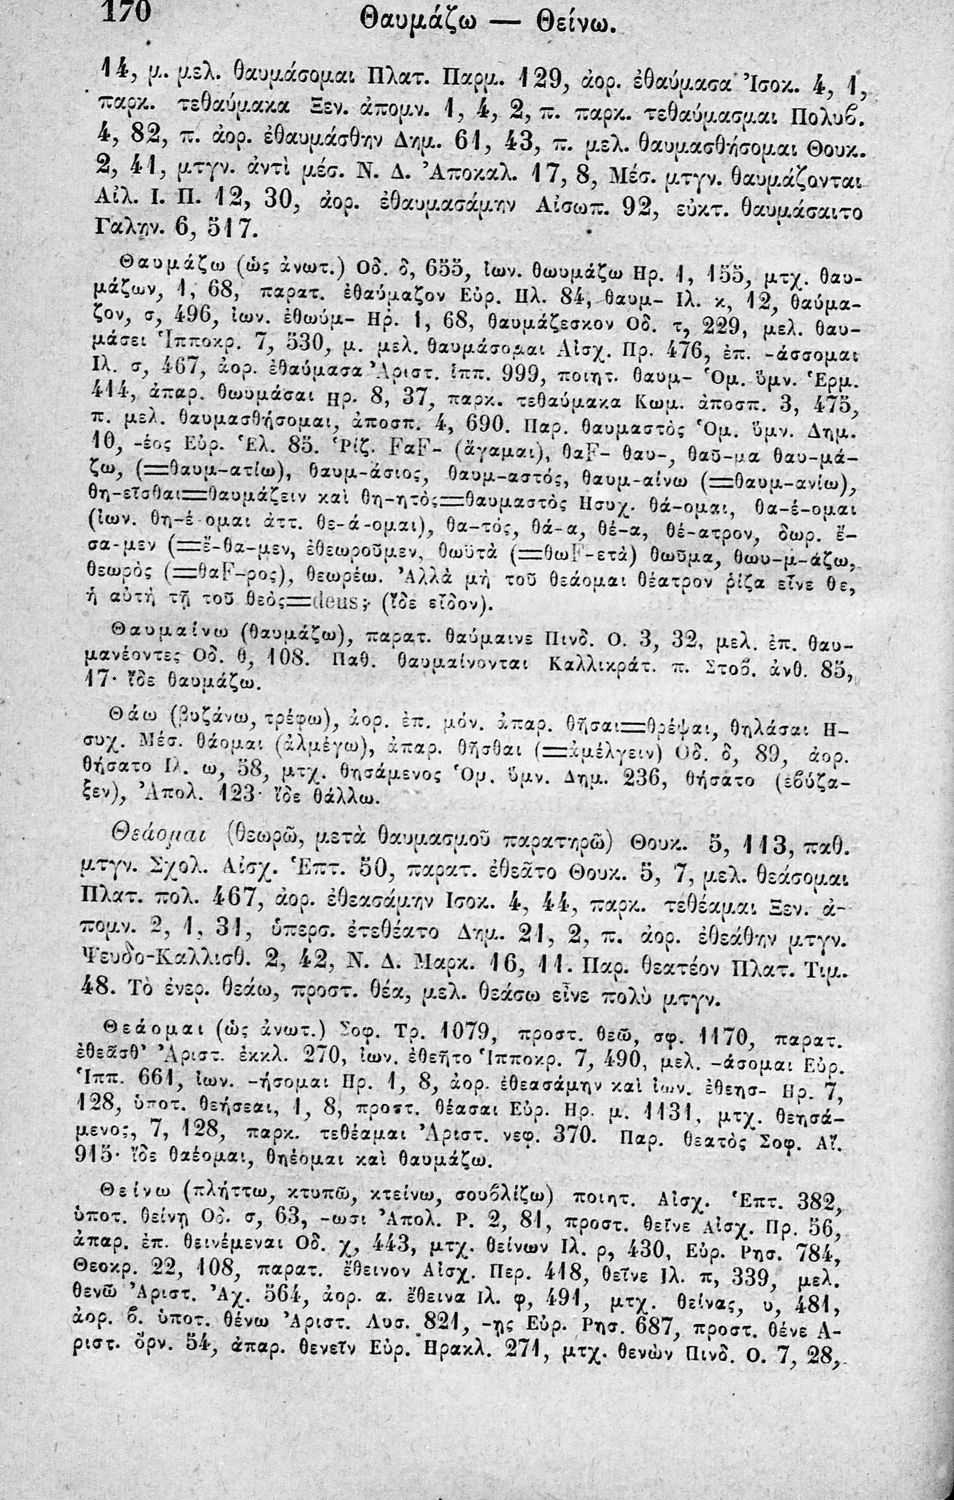 170
Θαυμάζω — Θείνω.
14, μ. μελ. θαυμάσομαι Πλατ. Παρμ. 129, ἀορ. ἐθαύμασα Ἰσοκ. 4, 1,
παρκ. τεθαύμακα Ξεν. ἀπομν. 1, 4, 2, π. παρκ. τεθαύμασμαι Πολυβ.
4, 82, π. ἀορ. ἐθαυμάσθην Δημ. 61, 43, π. μελ. θαυμασθήσομαι Θουκ.
2, 41, μτγν. ἀντὶ μέσ. Ν. Δ. Ἀποκαλ. 17, 8, Μέσ. μτγν. θαυμάζονται
Αἰλ. Ι. Π. 12, 30, ἀορ. ἐθαυμασάμην Αἰσωπ. 92, εὐκτ. θαυμάσαιτο
Γαλην. 6, 517.
Θαυμάζω (ὡς ἀνωτ.) Οδ. δ, 655, ἰων. θωυμάζω Ηρ. 1, 155, μτχ. θαυ-
μάζων, 1, 68, παρατ. ἐθαύμαζον Εὐρ. Ηλ. 84, θαυμ- Ιλ. κ, 12, θαύμα-
ζον, σ, 496, ἰων. ἐθωύμ- Ηρ. 1, 68, θαυμάζεσκον Οδ. τ, 229, μελ. θαυ-
μάσει Ἱπποκρ. 7, 530, μ. μελ. θαυμάσομαι Αἰσχ. Πρ. 476, ἐπ. -άσσομαι
Ιλ. σ, 467, ἀορ. ἐθαύμασα Ἀριστ. ἱππ. 999, ποιητ. θαυμ- Ὁμ. ὕμν. Ἑρμ.
414, ἀπαρ. θωυμάσαι Ηρ. 8, 37, παρκ. τεθαύμακα Κωμ. ἀποσπ. 3, 475,
π. μελ. θαυμασθήσομαι, ἀποσπ. 4, 690. Παρ. θαυμαστὸς Ὁμ. ὕμν. Δημ.
10, -έος Εὐρ. Ἑλ. 85. Ῥίζ. FaF- (ἄγαμαι), θαF- θαυ-, θαῦ-μα θαυ-μά-
ζω, (=θαυμ-ατίω), θαυμ-άσιος, θαυμ-αστός, θαυμ-αίνω (=θαυμ-ανίω),
θη-εῖσθαι=θαυμάζειν καὶ θη-ητὸς=θαυμαστὸς Ησυχ. θά-ομαι, θα-έ-ομαι
(ἰων. θη-έ-ομαι ἀττ. θε-ά-ομαι), θα-τός, θά-α, θέ-α, θέ-ατρον, δωρ. ἔ-
σα-μεν (=ἔ-θα-μεν, ἐθεωροῦμεν, θωϋτὰ (=θωF-ετὰ) θωῦμα, θωυ-μ-άζω,
θεωρὸς (=θαF-ρος), θεωρέω. Ἀλλὰ μὴ τοῦ θεάομαι θέατρον ῥίζα εἶνε θε,
ἡ αὐτὴ τῇ τοῦ θεὸς=deus; (ἴδε εἶδον).
Θαυμαίνω (θαυμάζω), παρατ. θαύμαινε Πινδ. Ο. 3, 32, μελ. ἐπ. θαυ-
μανέοντες Οδ. θ, 108. Παθ. θαυμαίνονται Καλλικράτ. π. Στοβ. ἀνθ. 85,
17· ἴδε θαυμάζω.
Θάω (βυζάνω, τρέφω), ἀορ. ἐπ. μόν. ἀπαρ. θῆσαι=θρέψαι, θηλάσαι Η-
συχ. Μέσ. θάομαι (ἀλμέγω), ἀπαρ. θῆσθαι (=ἀμέλγειν) Οδ. δ, 89, ἀορ.
θήσατο Ιλ. ω, 58, μτχ. θησάμενος Ὁμ. ὕμν. Δημ. 236, θήσατο (ἐβύζα-
ξεν), Ἀπολ. 123· ἴδε θάλλω.
Θεάομαι (θεωρῶ, μετὰ θαυμασμοῦ παρατηρῶ) Θουκ. 5, 113, παθ.
μτγν. Σχολ. Αἰσχ. Ἑπτ. 50, παρατ. ἐθεᾶτο Θουκ. 5, 7, μελ. θεάσομαι
Πλατ. πολ. 467, ἀορ. ἐθεασάμην Ισοκ. 4, 44, παρκ. τεθέαμαι Ξεν. ἀ-
πομν. 2, 1, 31, ὑπερσ. ἐτεθέατο Δημ. 21, 2, π. ἀορ. ἐθεάθην μτγν.
Ψευδο-Καλλισθ. 2, 42, Ν. Δ. Μαρκ. 16, 11. Παρ. θεατέον Πλατ. Τιμ.
48. Τὸ ἐνερ. θεάω, προστ. θέα, μελ. θεάσω εἶνε πολὺ μτγν.
Θεάομαι (ὡς ἀνωτ.) Σοφ. Τρ. 1079, προστ. θεῶ, σφ. 1170, παρατ.
ἐθεᾶσθ' Ἀριστ. ἐκκλ. 270, ἰων. ἐθεῆτο Ἱπποκρ. 7, 490, μελ. -άσομαι Εὐρ.
Ἱππ. 661, ἰων. -ήσομαι Ηρ. 1, 8, ἀορ. ἐθεασάμην καὶ ἰων. ἐθεησ- Ηρ. 7,
128, ὑποτ. θεήσεαι, 1, 8, προστ. θέασαι Εὐρ. Ηρ. μ. 1131, μτχ. θεησά-
μενος, 7, 128, παρκ. τεθέαμαι Ἀριστ. νεφ. 370. Παρ. θεατὸς Σοφ. Αἴ.
915· ἴδε θαέομαι, θηέομαι καὶ θαυμάζω.
Θείνω (πλήττω, κτυπῶ, κτείνω, σουβλίζω) ποιητ. Αἰσχ. Ἑπτ. 382,
ὑποτ. θείνῃ Οδ. σ, 63, -ωσι Ἀπολ. Ρ. 2, 81, προστ. θεῖνε Αἰσχ. Πρ. 56,
ἀπαρ. ἐπ. θεινέμεναι Οδ. χ, 443, μτχ. θείνων Ιλ. ρ, 430, Εὐρ. Ρησ. 784,
Θεοκρ. 22, 108, παρατ. ἔθεινον Αἰσχ. Περ. 418, θεῖνε Ιλ. π, 339, μελ.
θενῶ Ἀριστ. Ἀχ. 564, ἀορ. α. ἔθεινα Ιλ. φ, 491, μτχ. θείνας, υ, 481,
ἀορ. β. ὑποτ. θένω Ἀριστ. Λυσ. 821, -ῃς Εὐρ. Ρησ. 687, προστ. θένε Α-
ριστ. ὄρν. 54, ἀπαρ. θενεῖν Εὐρ. Ἡρακλ. 271, μτχ. θενὼν Πινδ. Ο. 7, 28,